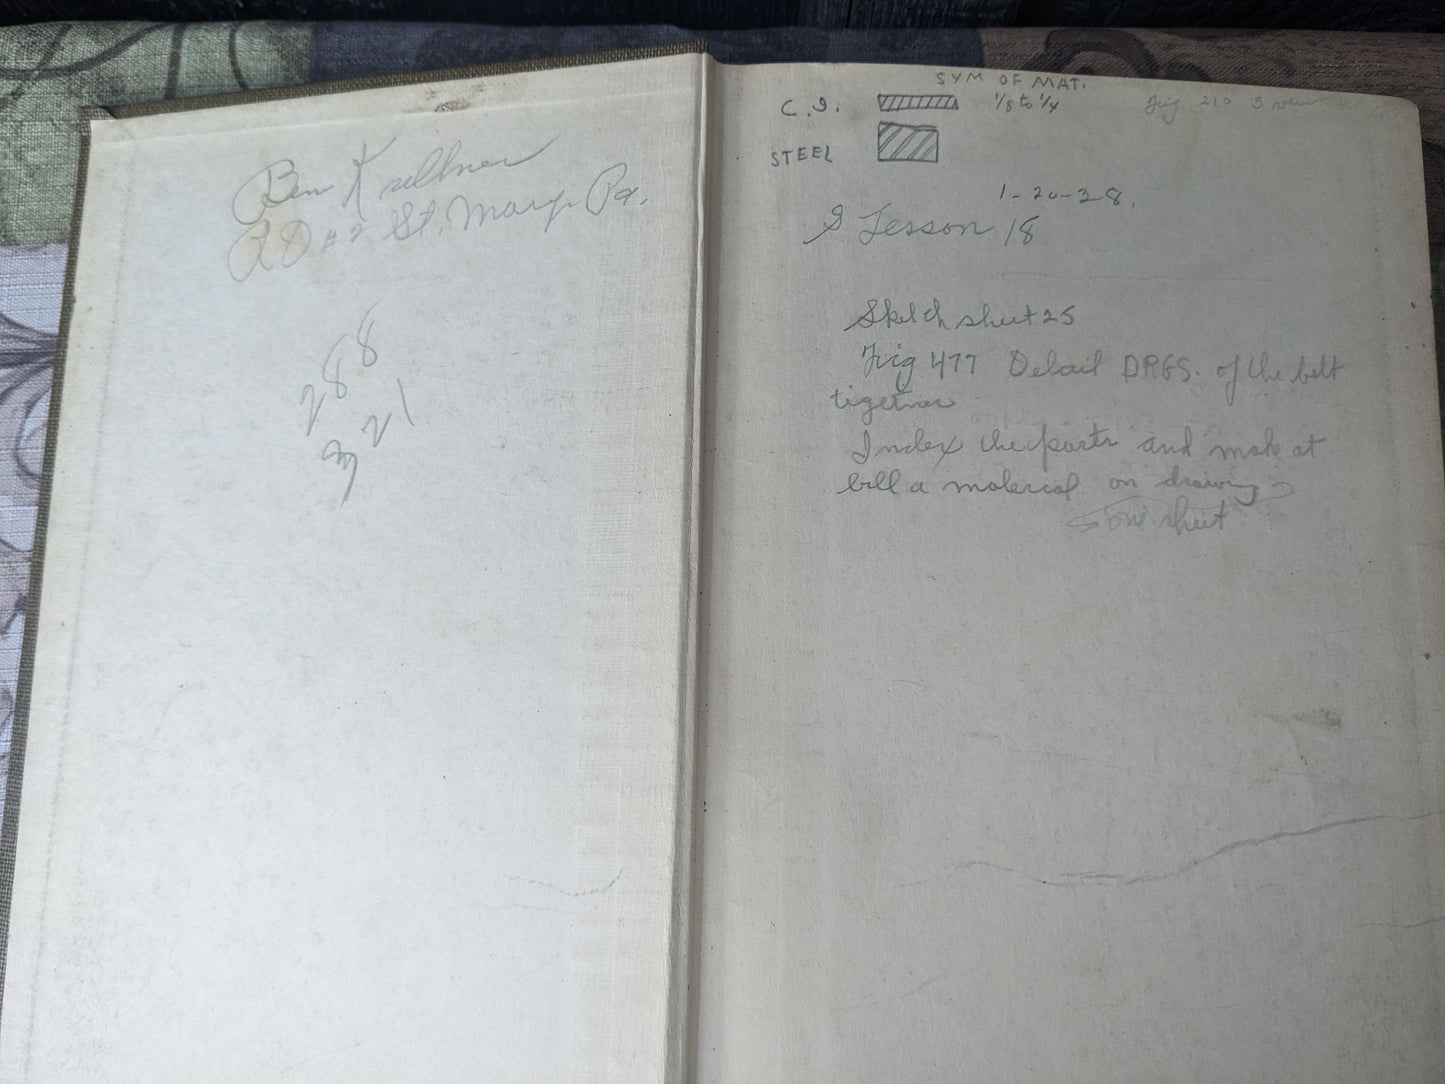 Ben Kellner
RD #2 St. Marys Pa.
288
321
SYM OF MAT.
C.I. 1/8 to 1/4
Fig 210 3 views
STEEL
1-20-38.
Lesson 18
Sketch sheet 25
Fig 477 Detail DRGS. of the belt
tigetner
Index the parts and make at
bill a material on drawing
on sheet